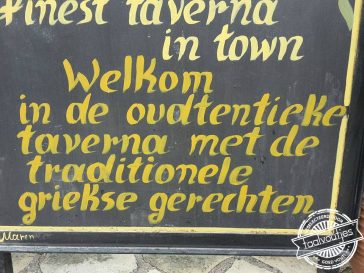 finest taverna
in town
Welkom
in de oudtentieke
taverna met de
traditionele
griekse gerechten
Maren
taalvoutjes